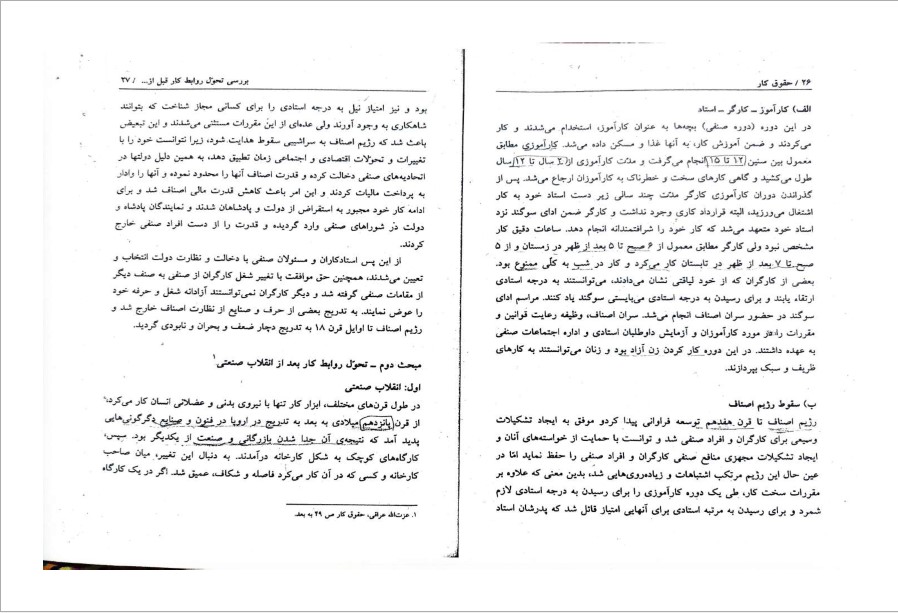 ۲۶ / حقوق کار
الف) کارآموز ــ کارگر ــ استاد
در این دوره (دوره صنفی) بچه‌ها به عنوان کارآموز، استخدام می‌شدند و کار
می‌کردند و ضمن آموزش کار، به آنها غذا و مسکن داده می‌شد. کارآموزی مطابق
معمول بین سنین ۱۲ تا ۱۵ انجام می‌گرفت و مدّت کارآموزی از ۲ سال تا ۱۲ سال
طول می‌کشید و گاهی کارهای سخت و خطرناک به کارآموزان ارجاع می‌شد. پس از
گذراندن دوران کارآموزی کارگر مدّت چند سالی زیر دست استاد خود به کار
اشتغال می‌ورزید، البته قرارداد کاری وجود نداشت و کارگر ضمن ادای سوگند نزد
استاد خود متعهد می‌شد که کار خود را شرافتمندانه انجام دهد. ساعات دقیق کار
مشخص نبود ولی کارگر مطابق معمول از ۶ صبح تا ۵ بعد از ظهر در زمستان و از ۵
صبح تا ۷ بعد از ظهر در تابستان کار می‌کرد و کار در شب به کلّی ممنوع بود.
بعضی از کارگران که از خود لیاقتی نشان می‌دادند، می‌توانستند به درجه استادی
ارتقاء یابند و برای رسیدن به درجه استادی می‌بایستی سوگند یاد کنند. مراسم ادای
سوگند در حضور سران اصناف انجام می‌شد. سران اصناف، وظیفه رعایت قوانین و
مقررات را در مورد کارآموزان و آزمایش داوطلبان استادی و اداره اجتماعات صنفی
به عهده داشتند. در این دوره کار کردن زن آزاد بود و زنان می‌توانستند به کارهای
ظریف و سبک بپردازند.
ب) سقوط رژیم اصناف
رژیم اصناف تا قرن هفدهم توسعه فراوانی پیدا کردو موفق به ایجاد تشکیلات
وسیعی برای کارگران و افراد صنفی شد و توانست با حمایت از خواسته‌های آنان و
ایجاد تشکیلات مجهزی منافع صنفی کارگران و افراد صنفی را حفظ نماید امّا در
عین حال این رژیم مرتکب اشتباهات و زیاده‌روی‌هایی شد، بدین معنی که علاوه بر
مقررات سخت کار، طی یک دوره کارآموزی را برای رسیدن به درجه استادی لازم
شمرد و برای رسیدن به مرتبه استادی برای آنهایی امتیاز قائل شد که پدرشان استاد
بررسی تحوّل روابط کار قبل از... / ۲۷
بود و نیز امتیاز نیل به درجه استادی را برای کسانی مجاز شناخت که بتوانند
شاهکاری به وجود آورند ولی عده‌ای از این مقررات مستثنی می‌شدند و این تبعیض
باعث شد که رژیم اصناف به سراشیبی سقوط هدایت شود، زیرا نتوانست خود را با
تغییرات و تحوّلات اقتصادی و اجتماعی زمان تطبیق دهد، به همین دلیل دولتها در
اتحادیه‌های صنفی دخالت کرده و قدرت اصناف آنها را محدود نموده و آنها را وادار
به پرداخت مالیات کردند و این امر باعث کاهش قدرت مالی اصناف شد و برای
ادامه کار خود مجبور به استقراض از دولت و پادشاهان شدند و نمایندگان پادشاه و
دولت در شوراهای صنفی وارد گردیده و قدرت را از دست افراد صنفی خارج
کردند.
از این پس استادکاران و مسئولان صنفی با دخالت و نظارت دولت انتخاب و
تعیین می‌شدند، همچنین حق موافقت با تغییر شغل کارگران از صنفی به صنف دیگر
از مقامات صنفی گرفته شد و دیگر کارگران نمی‌توانستند آزادانه شغل و حرفه خود
را عوض نمایند. به تدریج بعضی از حرف و صنایع از نظارت اصناف خارج شد و
رژیم اصناف تا اوایل قرن ۱۸ به تدریج دچار ضعف و بحران و نابودی گردید.
مبحث دوم ــ تحوّل روابط کار بعد از انقلاب صنعتی۱
اول: انقلاب صنعتی
در طول قرن‌های مختلف، ابزار کار تنها با نیروی بدنی و عضلانی انسان کار می‌کرد،
از قرن پانزدهم میلادی به بعد به تدریج در اروپا در فنون و صنایع دگرگونی‌هایی
پدید آمد که نتیجه‌ی آن جدا شدن بازرگانی و صنعت از یکدیگر بود. سپس،
کارگاه‌های کوچک به شکل کارخانه درآمدند. به دنبال این تغییر، میان صاحب
کارخانه و کسی که در آن کار می‌کرد فاصله و شکاف، عمیق شد. اگر در یک کارگاه
۱. عزت‌الله عراقی، حقوق کار ص ۴۹ به بعد.